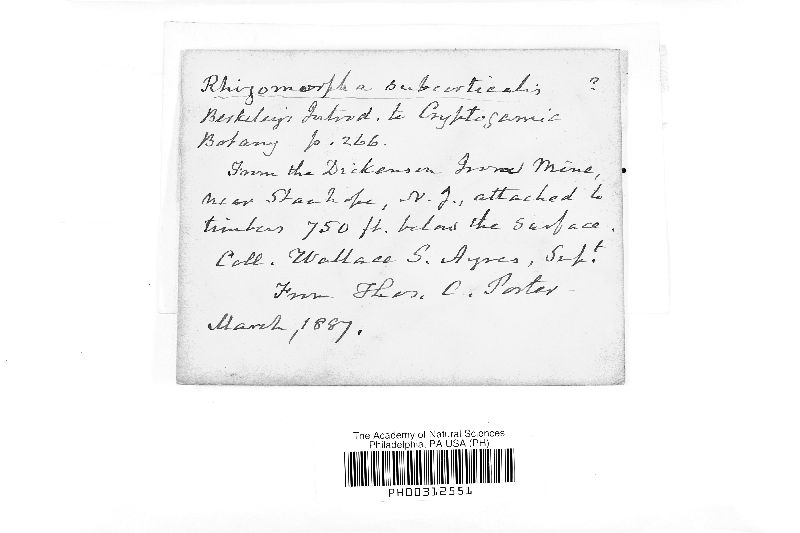 Rhizomorpha subcorticalis ?
Berkeley's Introd. to Cryptogamic
Botany p. 266.
From the Dickenson Iron Mine,
near Stanhope, N. J., attached to
timbers 750 ft. below the surface.
Coll. Wallace S. Ayres, Supt.
From Thos. C. Porter
March, 1887.
The Academy of Natural Sciences
Philadelphia, PA USA (PH)
PH00312551